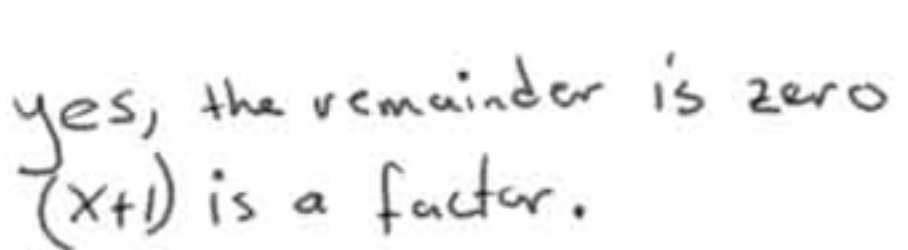 yes, the remainder is zero
(x+1) is a factor.